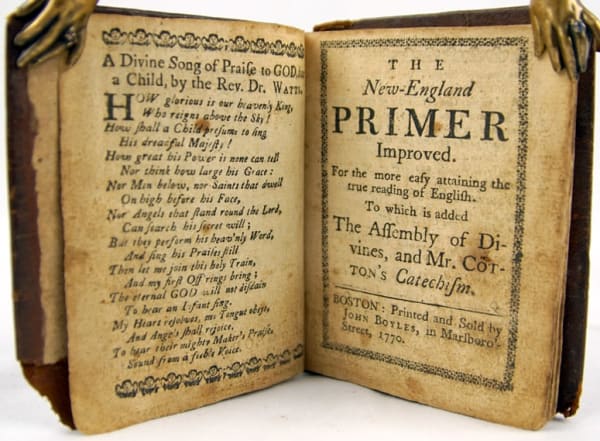 A Divine Song of Praiſe to GOD, for
a Child, by the Rev. Dr. WATTS.
HOW glorious is our heavenly King,
Who reigns above the Sky!
How ſhall a Child preſume to ſing
His dreadful Majeſty!
How great his Power is none can tell
Nor think how large his Grace:
Nor Men below, nor Saints that dwell
On high before his Face,
Nor Angels that ſtand round the Lord,
Can ſearch his ſecret will;
But they perform his heav'nly Word,
And ſing his Praiſes ſtill
Then let me join this holy Train,
And my firſt Off'rings bring;
The eternal GOD will not diſdain
To hear an Infant ſing.
My Heart reſolves, my Tongue obeys,
And Angels ſhall rejoice,
To hear their mighty Maker's Praiſe,
Sound from a feeble Voice.
THE
New-England
PRIMER
Improved.
For the more eaſy attaining the
true reading of Engliſh.
To which is added
The Aſſembly of Di-
vines, and Mr. COT-
TON's Catechiſm.
BOSTON: Printed and Sold by
JOHN BOYLES, in Marlboro'
Street, 1770.